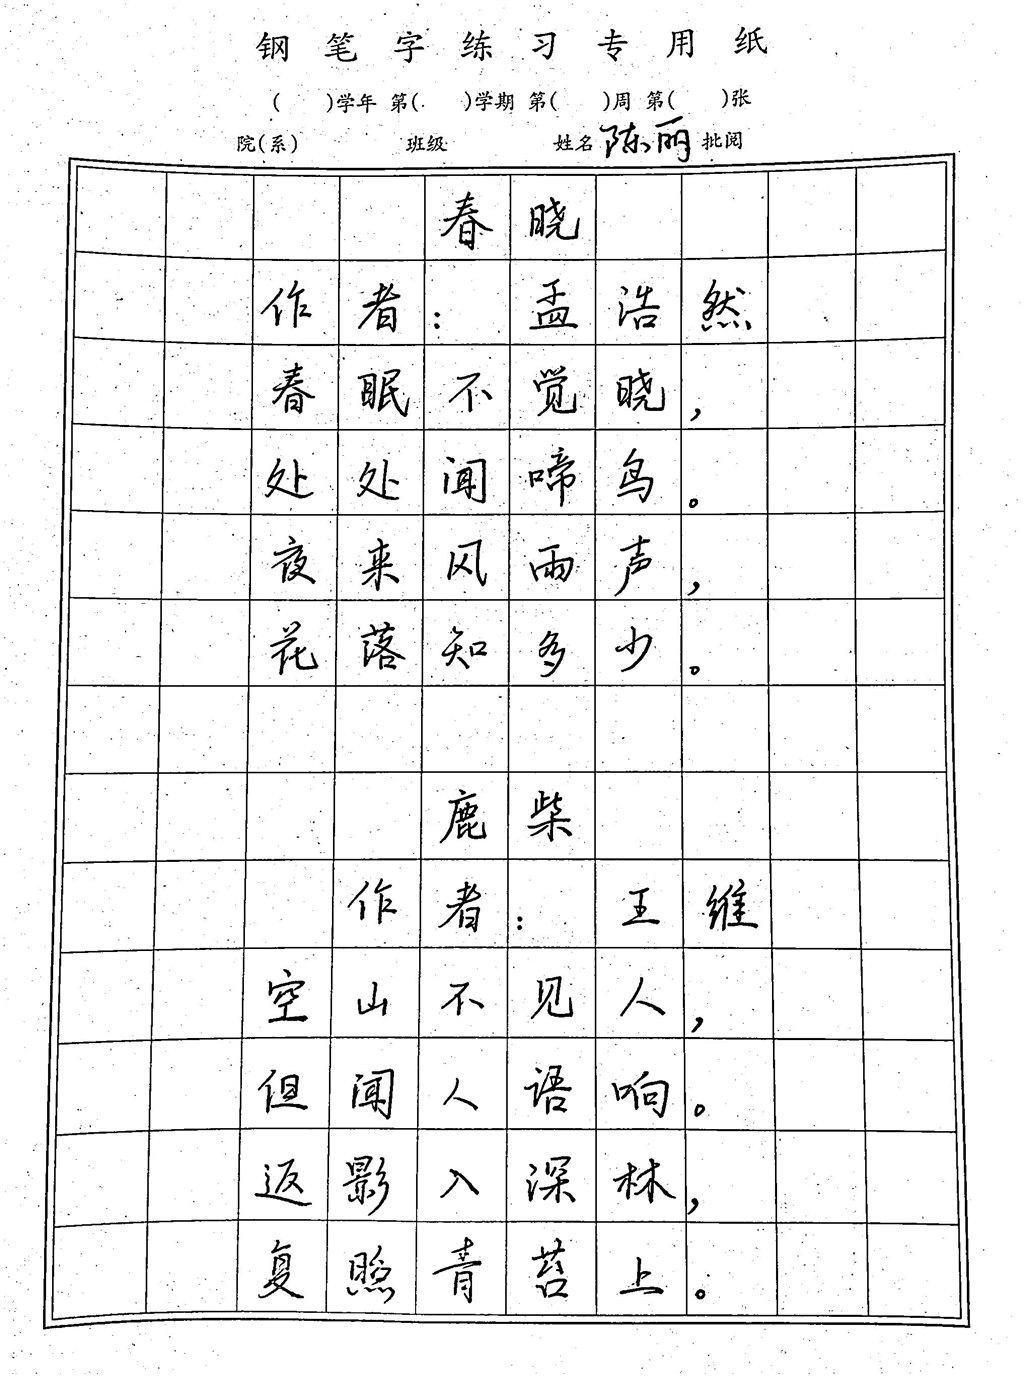 钢笔字练习专用纸
(　)学年 第(　)学期 第(　)周 第(　)张
院(系)　班级　姓名 陈丽 批阅
春晓
作者：孟浩然
春眠不觉晓，
处处闻啼鸟。
夜来风雨声，
花落知多少。
鹿柴
作者：王维
空山不见人，
但闻人语响。
返影入深林，
复照青苔上。